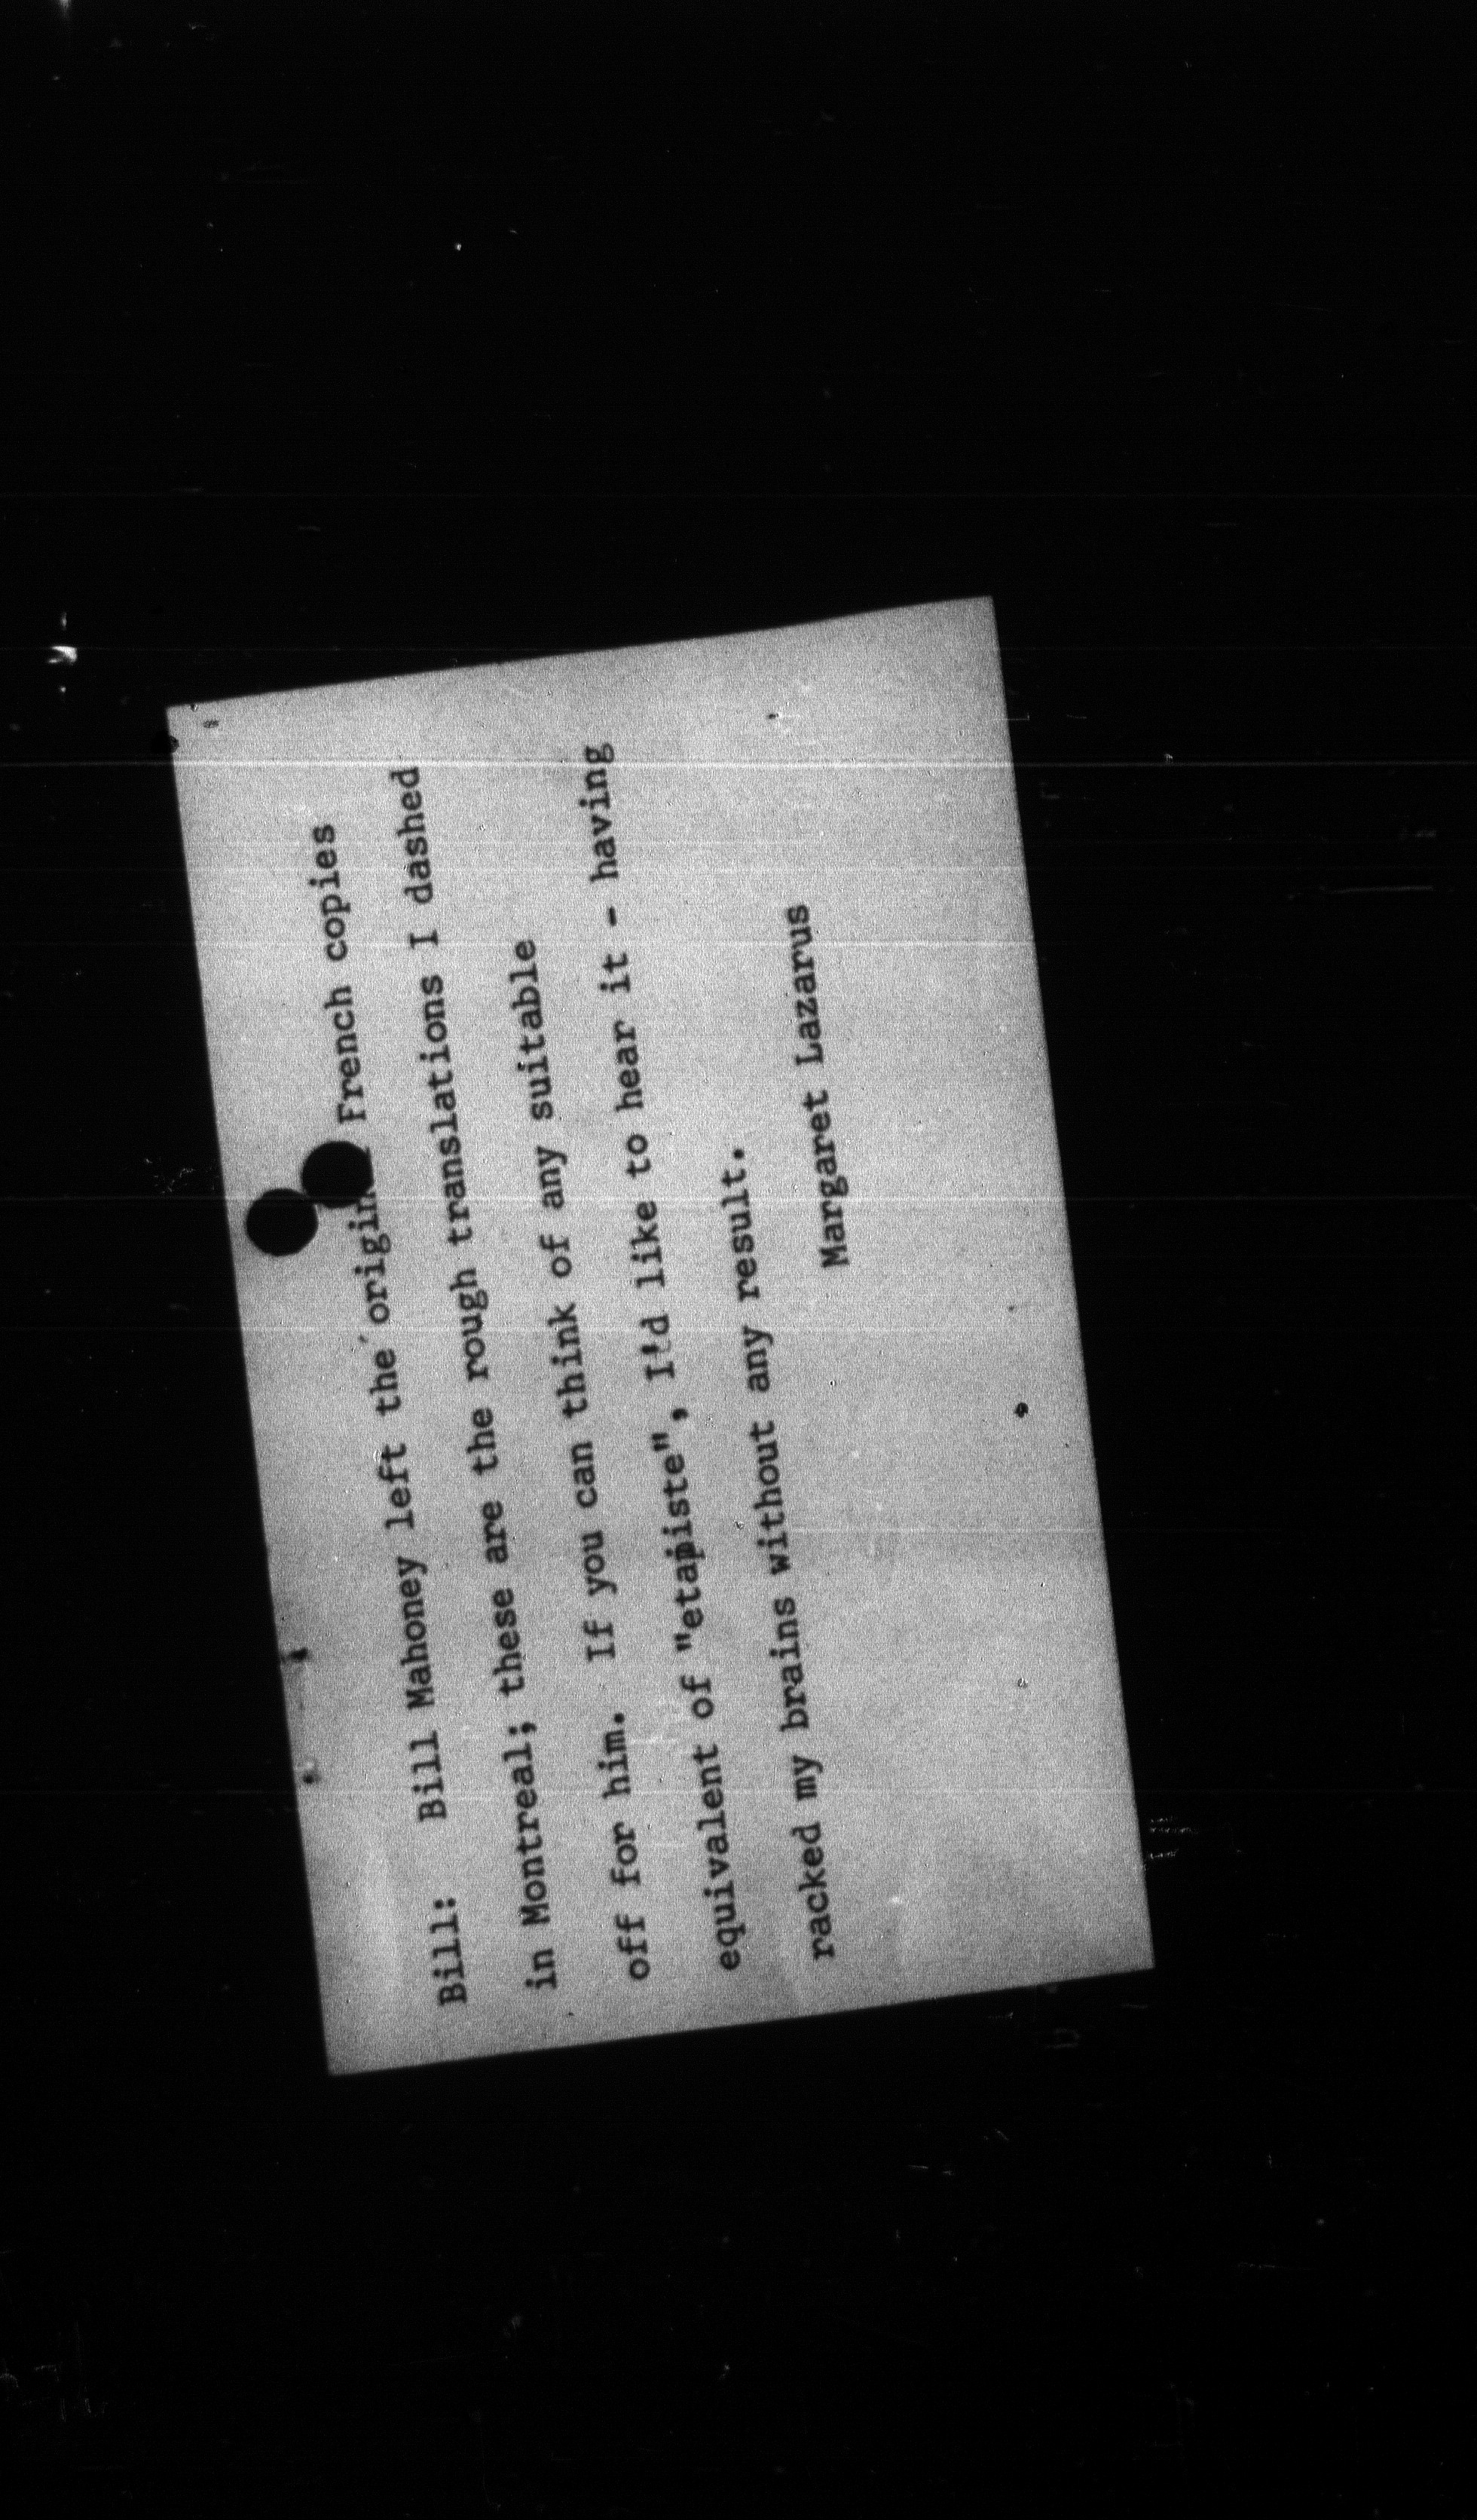 Bill:   Bill Mahoney left the French copies
in Montreal; these are the rough translations I dashed
off for him.  If you can think of any suitable
equivalent of "etapiste", I'd like to hear it - having
racked my brains without any result.
Margaret Lazarus